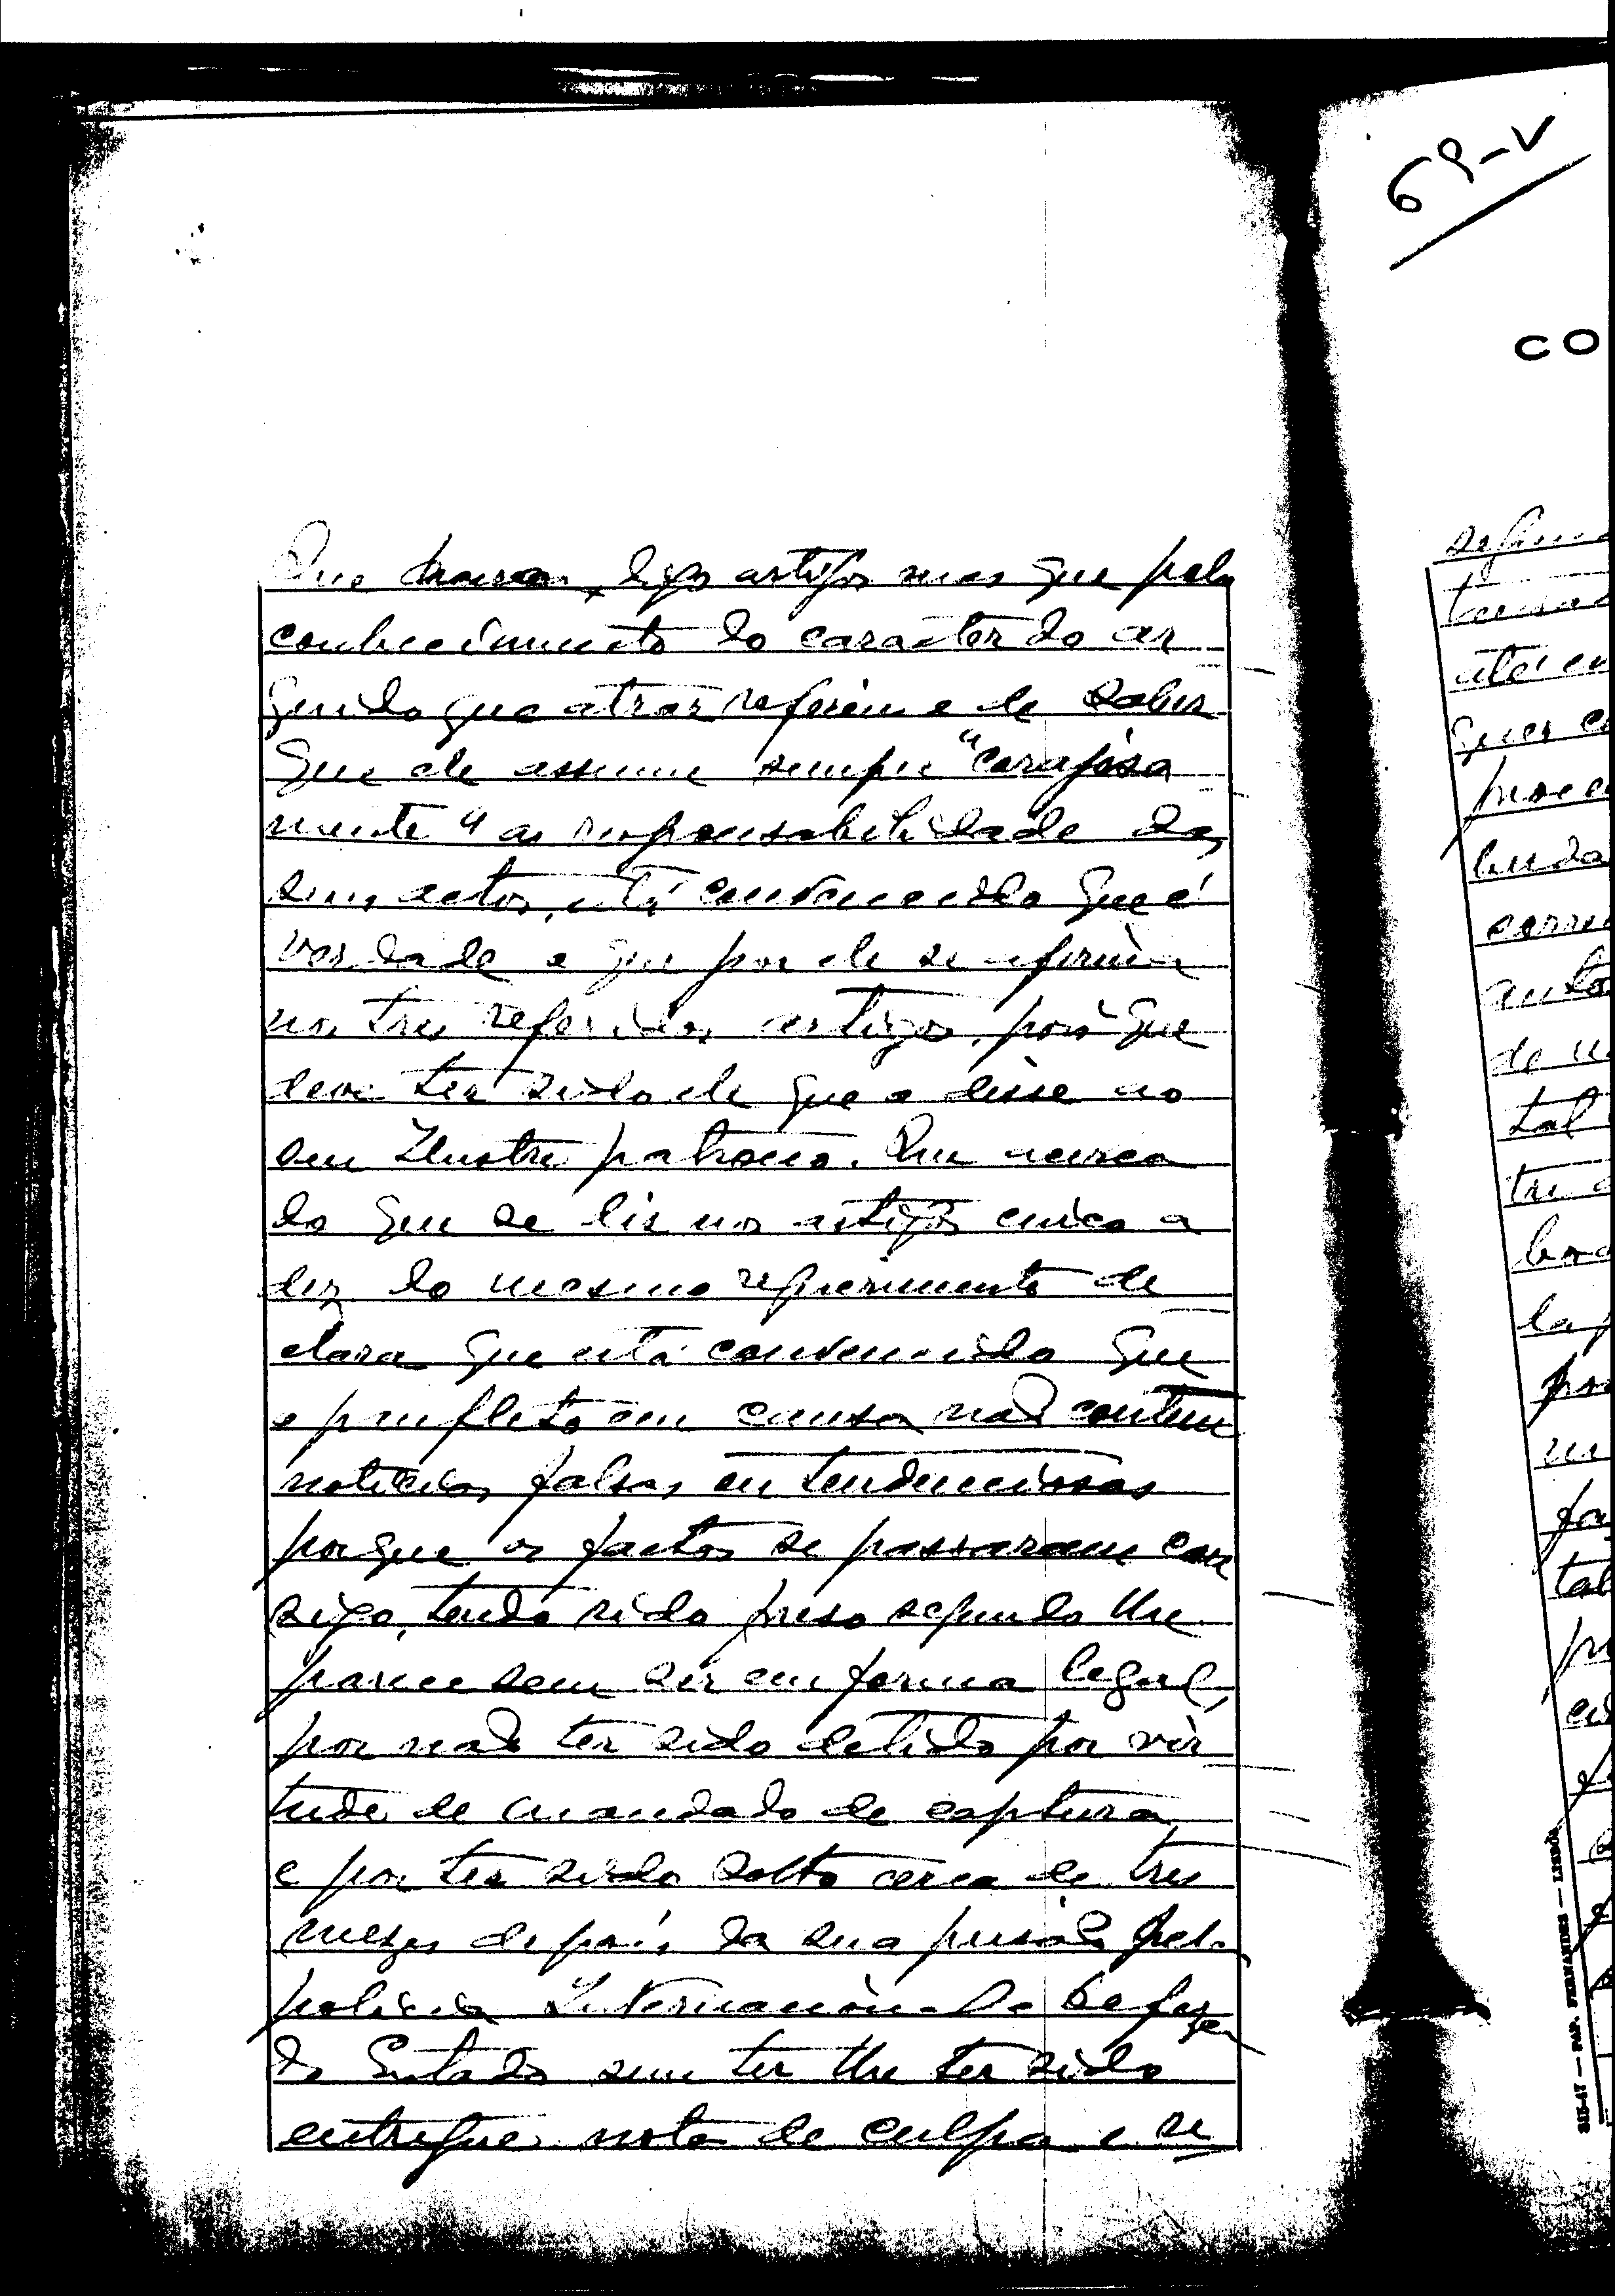 69-V
CO
digo artigos mas que pelo
conhecimento do caracter do ar
guido que atraz referiu e de saber
que ele assume sempre "corajosa
mente" a responsabilidade dos
seus actos, está convencido que é
verdade o que por ele se afirma
nos tres referidos artigos, porque
deve ter sido ele que o disse ao
seu Ilustre patrono. Que acerca
do que se diz nos artigos cinco a
dez do mesmo requerimento de
clara que está convencido que
o panfleto em causa não contem
noticias falsas ou tendenciosas
porque os factos se passaram con
sigo, tendo sido preso segundo lhe
parece sem ser em forma legal,
por não ter sido detido por vir
tude de mandado de captura,
e por ter sido solto cerca de tres
mezes depois da sua prisão pela
policia Internacional e de Defeza
do Estado sem ter lhe ter sido
entregue nota de culpa e se
315-47 — PAP. FERNANDES — LISBOA